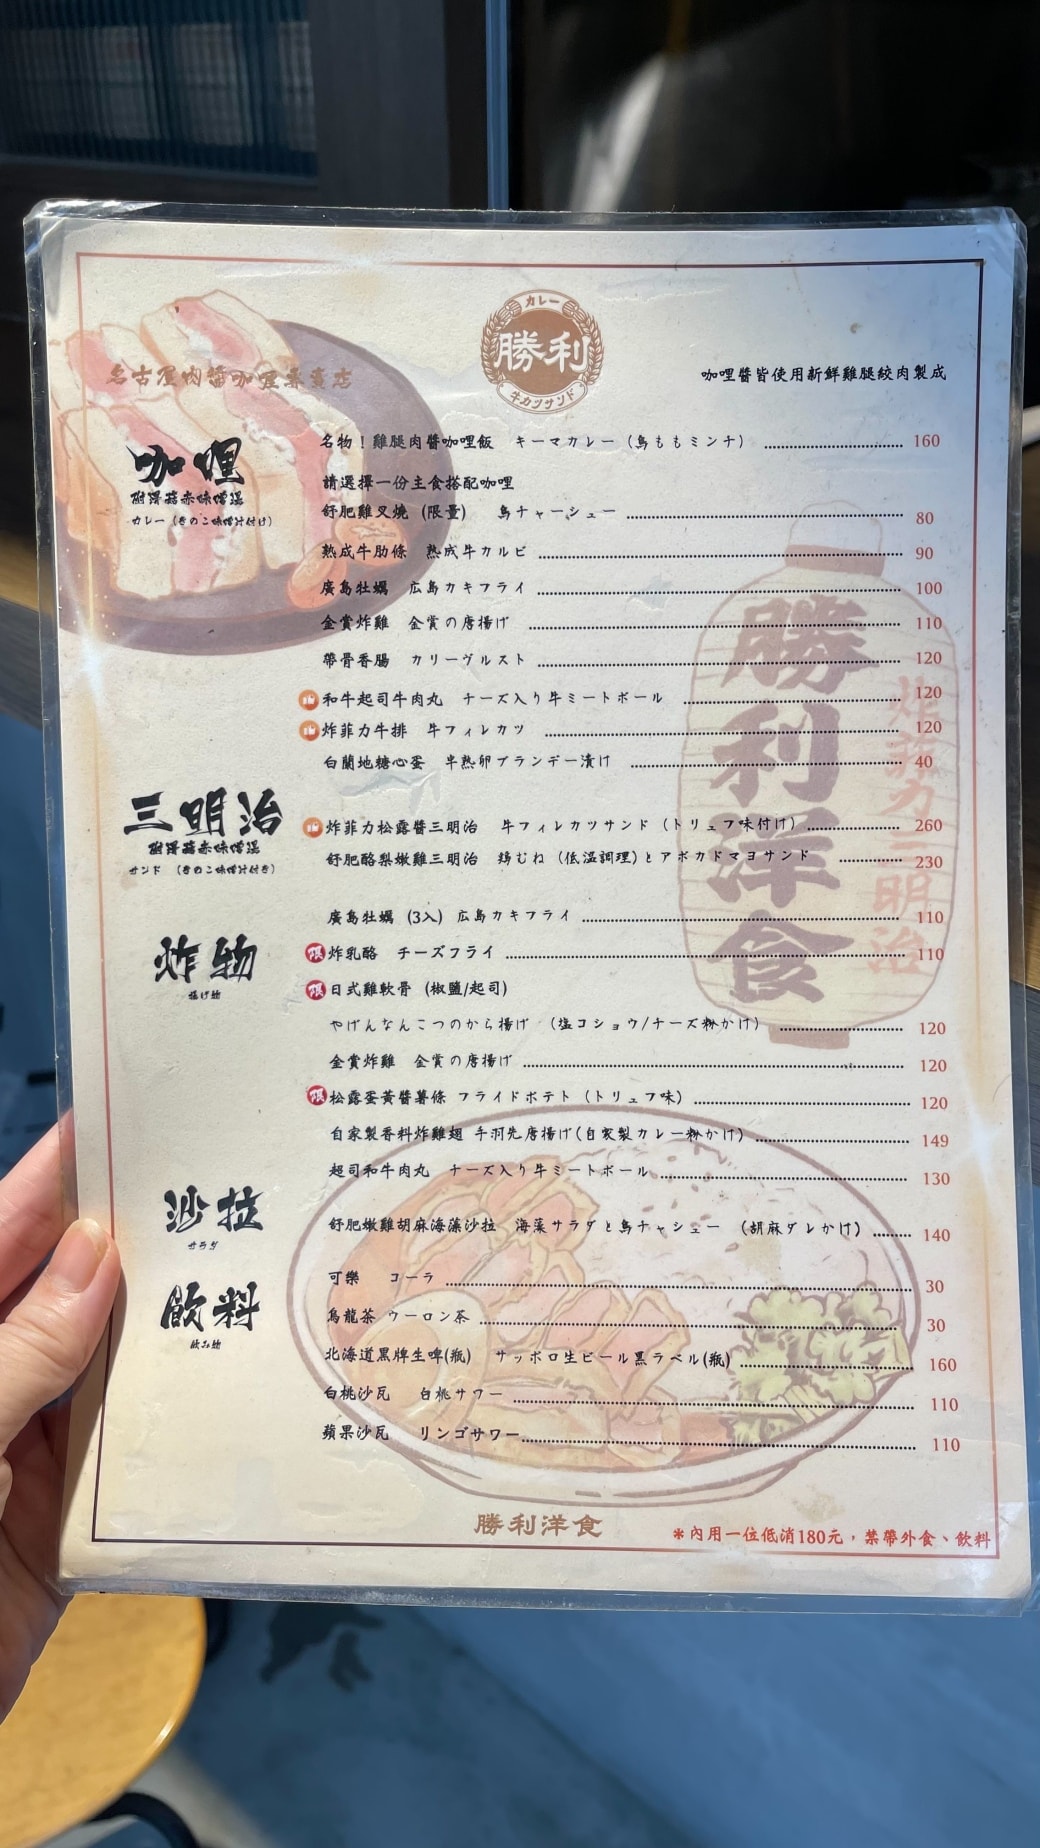 カレー
勝利
牛カツサンド
名古屋肉醬咖哩專賣店
咖哩醬皆使用新鮮雞腿絞肉製成
咖哩
附滑菇赤味噌湯
カレー（きのこ味噌汁付け）
名物！雞腿肉醬咖哩飯 キーマカレー（鳥ももミンチ） 160
請選擇一份主食搭配咖哩
舒肥雞叉燒 (限量) 鳥チャーシュー 80
熟成牛肋條 熟成牛カルビ 90
廣島牡蠣 広島カキフライ 100
金賞炸雞 金賞の唐揚げ 110
帶骨香腸 カリーヴルスト 120
和牛起司牛肉丸 チーズ入り牛ミートボール 120
炸菲力牛排 牛フィレカツ 120
白蘭地糖心蛋 半熟卵ブランデー漬け 40
三明治
附滑菇赤味噌湯
サンド （きのこ味噌汁付き）
炸菲力松露醬三明治 牛フィレカツサンド（トリュフ味付け） 260
舒肥酪梨嫩雞三明治 鶏むね（低温調理)とアボカドマヨサンド 230
炸物
揚げ物
廣島牡蠣 (3入) 広島カキフライ 110
限 炸乳酪 チーズフライ 110
限 日式雞軟骨 (椒鹽/起司)
やげんなんこつのから揚げ （塩コショウ/チーズ粉かけ） 120
金賞炸雞 金賞の唐揚げ 120
限 松露蛋黃醬薯條 フライドポテト（トリュフ味） 120
自家製香料炸雞翅 手羽先唐揚げ(自家製カレー粉かけ) 149
起司和牛肉丸 チーズ入り牛ミートボール 130
沙拉
サラダ
舒肥嫩雞胡麻海藻沙拉 海藻サラダと鳥チャシュー （胡麻ダレかけ） 140
飲料
飲み物
可樂 コーラ 30
烏龍茶 ウーロン茶 30
北海道黑牌生啤(瓶) サッポロ生ビール黒ラベル(瓶) 160
白桃沙瓦 白桃サワー 110
蘋果沙瓦 リンゴサワー 110
勝利洋食
炸菲力三明治
勝利洋食
＊內用一位低消180元，禁帶外食、飲料